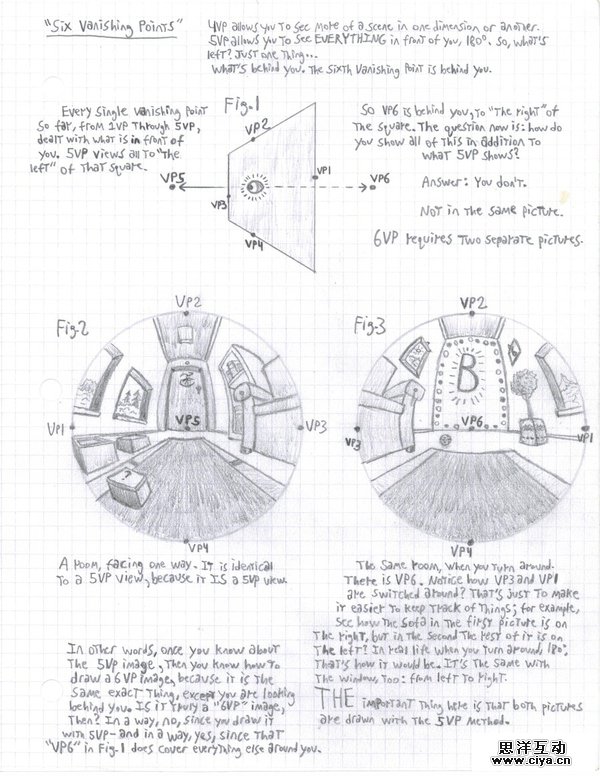 "Six Vanishing Points"
4VP allows you to see more of a scene in one dimension or another.
5VP allows you to see EVERYTHING in front of you, 180°. So, what's
left? Just one thing...
What's behind you. The sixth vanishing point is behind you.
Every single vanishing point
so far, from 1VP through 5VP,
dealt with what is in front of
you. 5VP views all to "the
left" of that square.
Fig.1
VP2
VP1
VP5
VP6
VP3
VP4
So VP6 is behind you, to "the right" of
the square. The question now is: how do
you show all of this in addition to
what 5VP shows?
Answer: You don't.
Not in the same picture.
6VP requires two separate pictures.
Fig.2
VP2
VP1
VP5
VP3
VP4
?
Fig.3
VP2
B
VP3
VP6
VP1
VP4
A room, facing one way. It is identical
to a 5VP view, because it IS a 5VP view.
The same room, when you turn around.
There is VP6. Notice how VP3 and VP1
are switched around? That's just to make
it easier to keep track of things; for example,
see how the sofa in the first picture is on
the right, but in the second the rest of it is on
the left? In real life when you turn around, 180°,
that's how it would be. It's the same with
the window, too: from left to right.
THE important thing here is that both pictures
are drawn with the 5VP method.
In other words, once you know about
the 5VP image, then you know how to
draw a 6VP image, because it is the
same exact thing, except you are looking
behind you. Is it truly a "6VP" image,
then? In a way, no, since you draw it
with 5VP- and in a way, yes, since that
"VP6" in Fig.1 does cover everything else around you.
思洋互动
www.ciya.cn